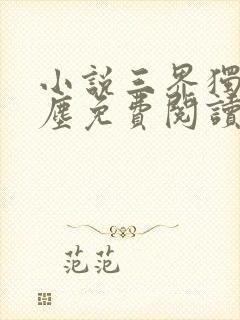 小說三界獨
塵免費閱讀
范范